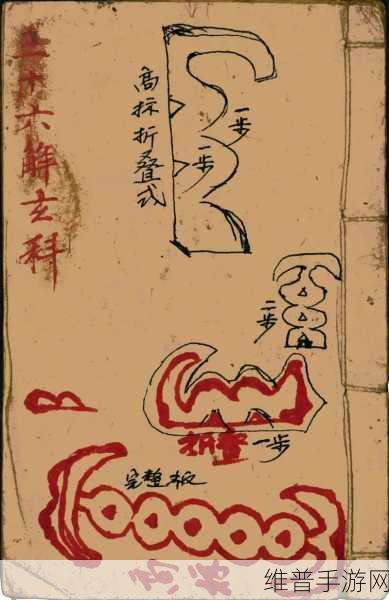 三十六解玄科
高标折叠式
一步
一步
二步
折叠
一步
完整板
高标
维普手游网